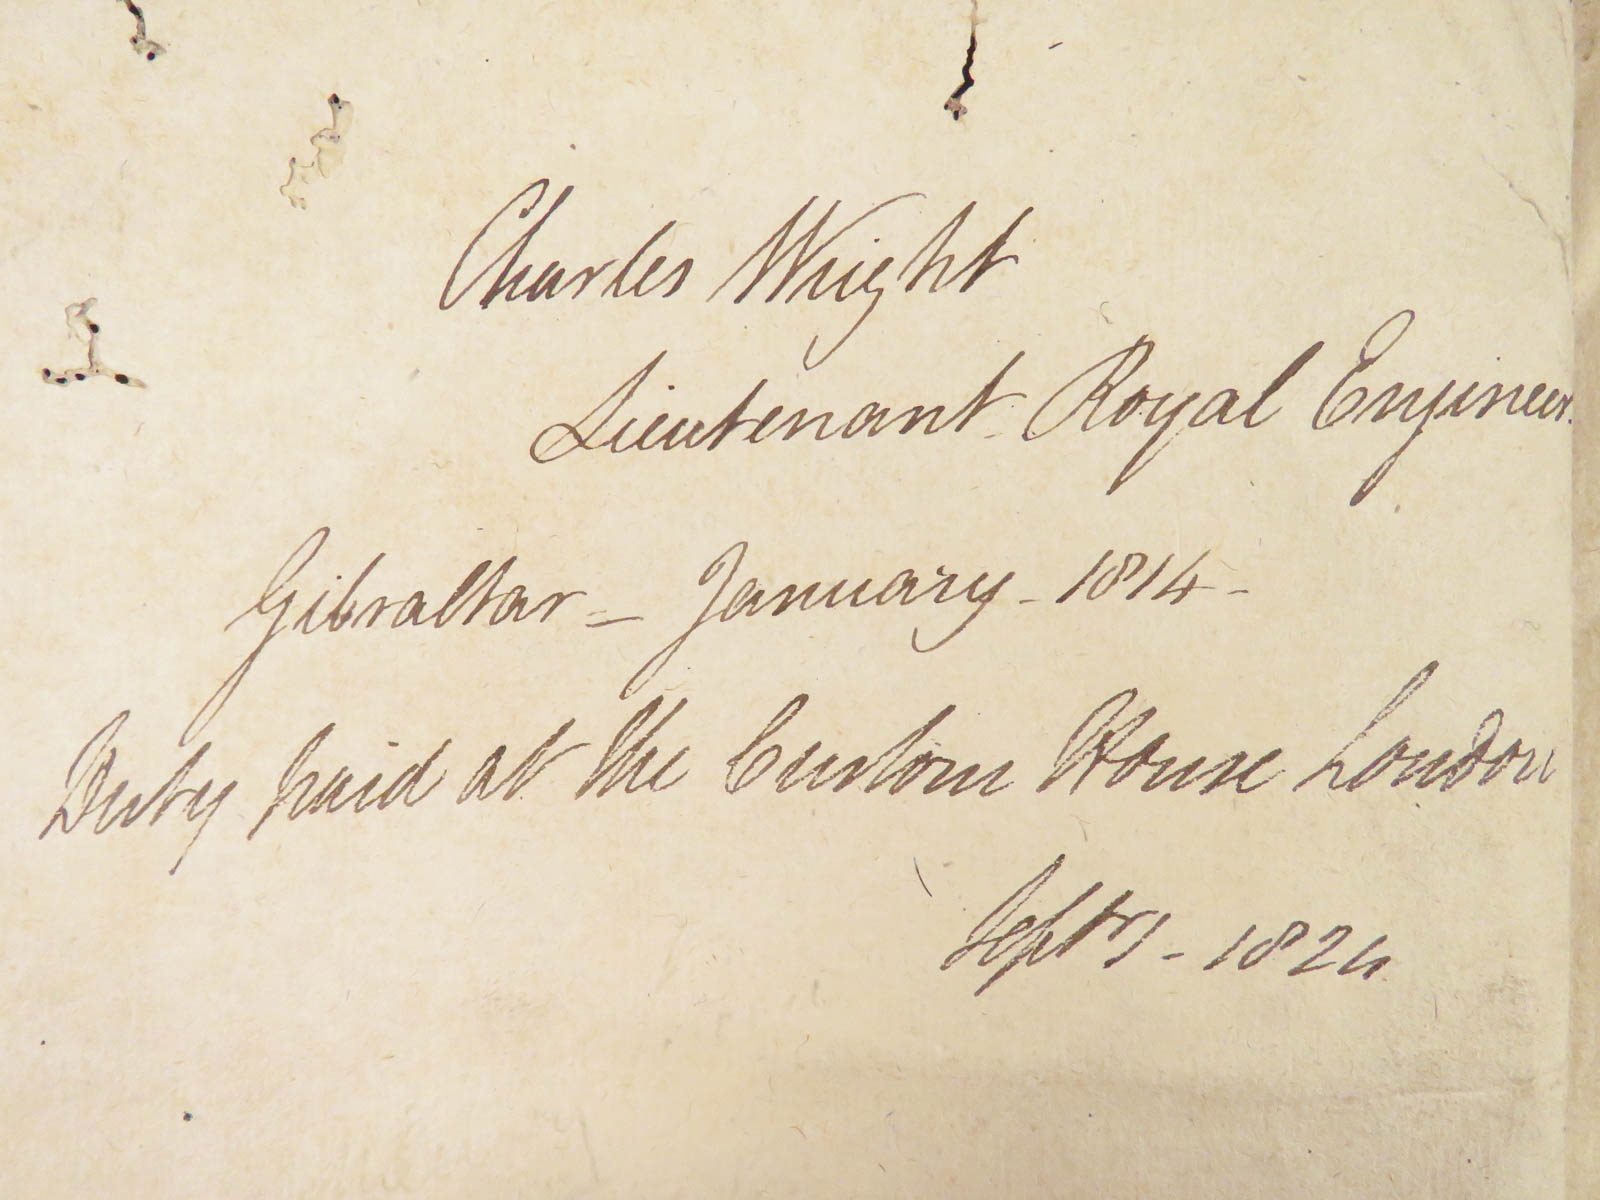 Charles Wright
Lieutenant Royal Engineer.
Gibraltar = January - 1814 -
Duty paid at the Custom House London
Septr 1 - 1824